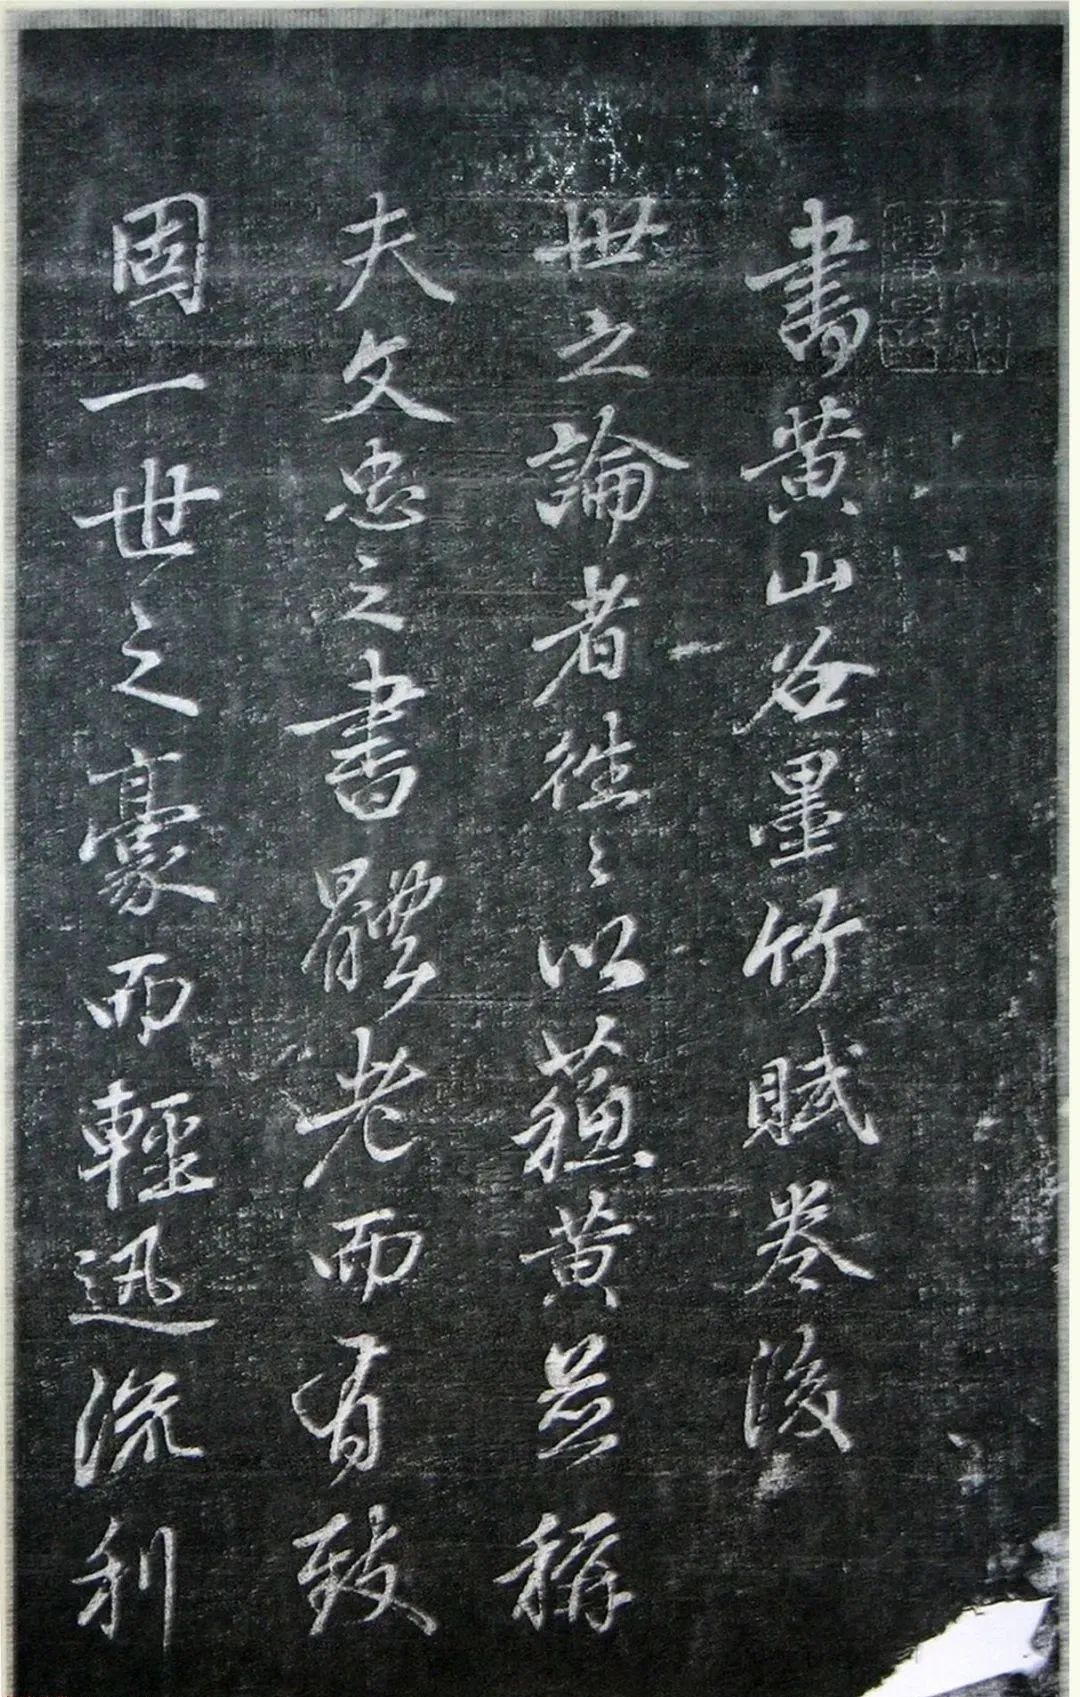 書黄山谷墨竹賦卷後
世之論者往々以蘇黄並稱
夫文忠之書體老而有致
固一世之豪而輕迅流利